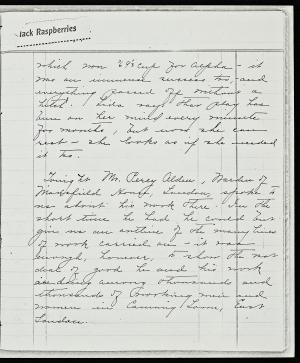 Jack Raspberries
which won 2 cup for Alpha - it
was an immense success too, and
everything passed off without a
hitch. Lida says that play has
been on her mind every minute
for months, but now she can
rest - she looks as if she needed
it too.
Tonight Mr. Percy Alden, Warden of
Mansfield House, London, spoke to
us about his work there. In the
short time he had he could but
give us an outline of the many lines
of work carried on - it was
enough, however, to show the vast
deal of good he and his work
are doing among thousands and
thousands of working men and
women in Canning Town, East
London.